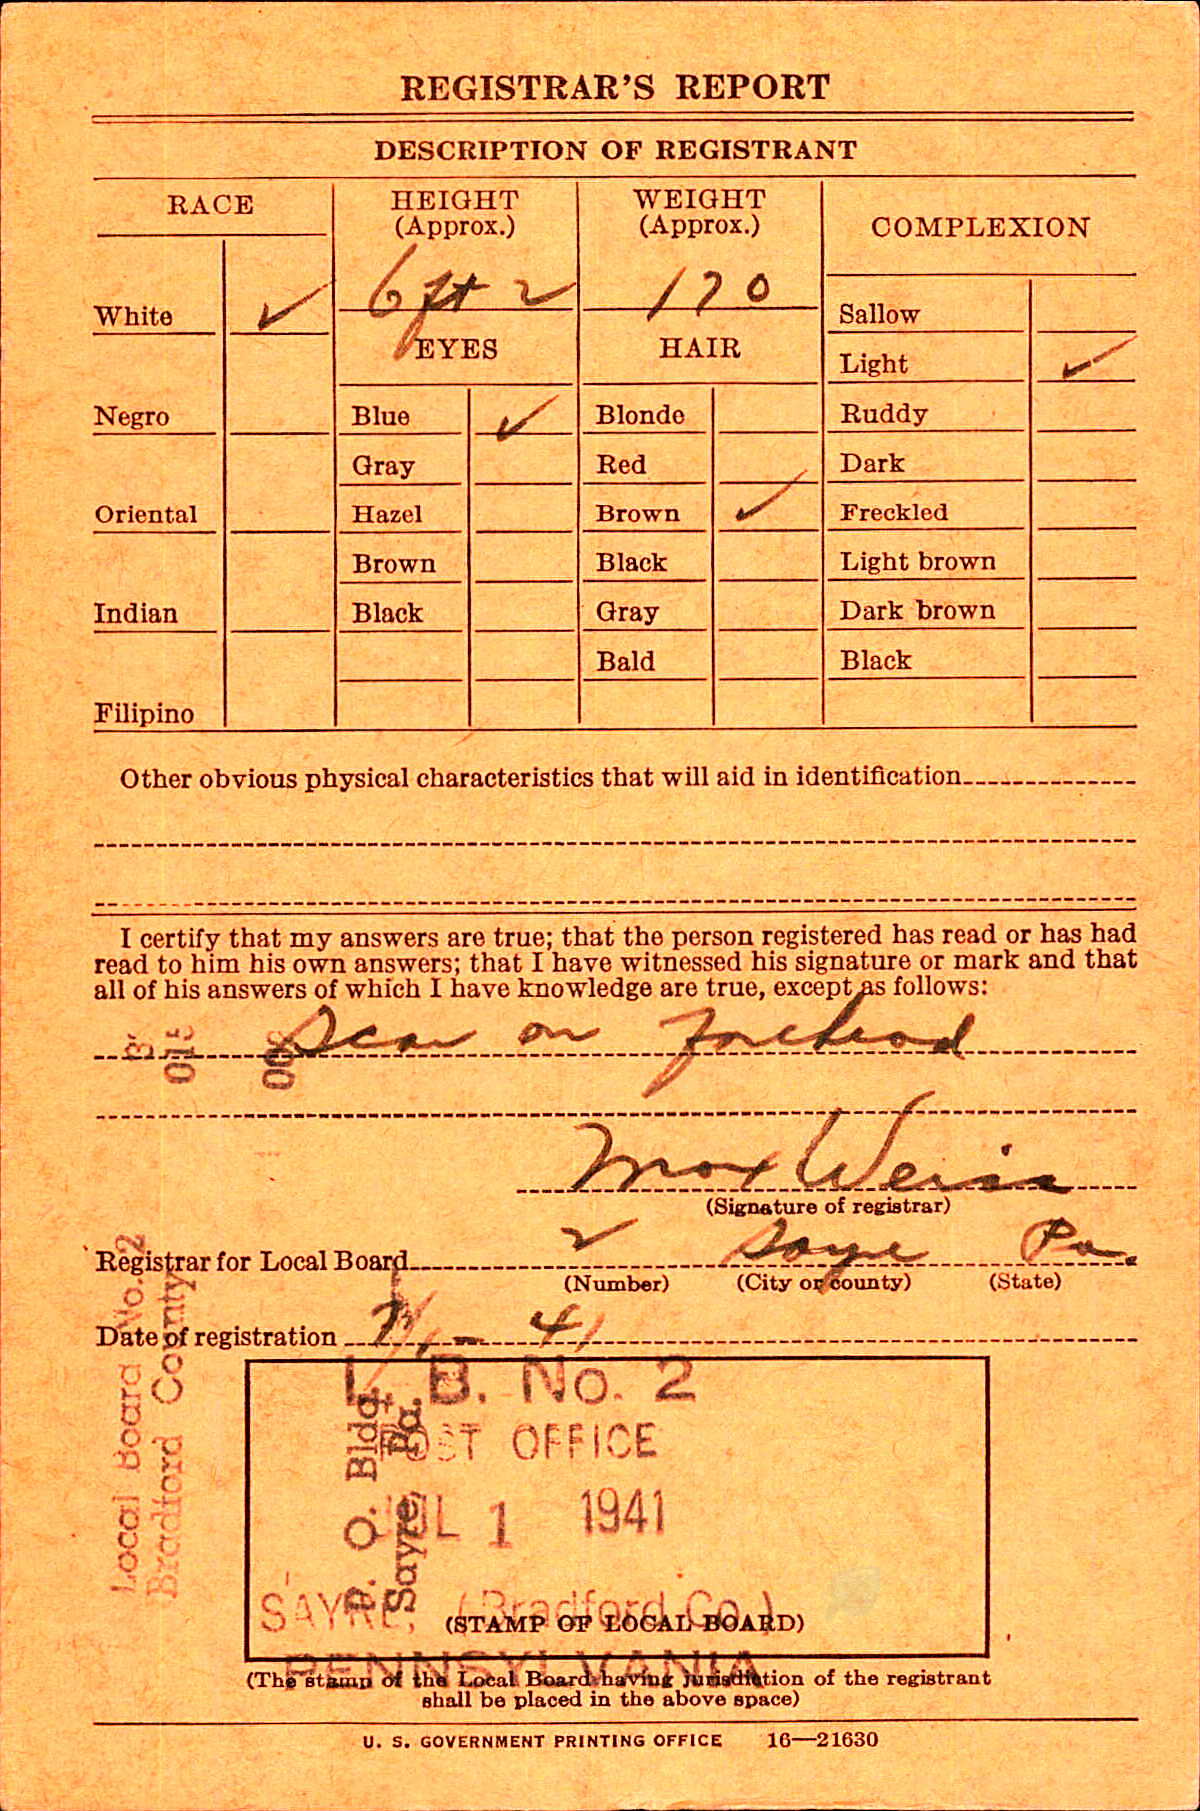 REGISTRAR'S REPORT
DESCRIPTION OF REGISTRANT
RACE
HEIGHT
(Approx.)
WEIGHT
(Approx.)
COMPLEXION
6 ft 2
170
White ✓
Negro
Oriental
Indian
Filipino
EYES
Blue ✓
Gray
Hazel
Brown
Black
HAIR
Blonde
Red
Brown ✓
Black
Gray
Bald
Sallow
Light ✓
Ruddy
Dark
Freckled
Light brown
Dark brown
Black
Other obvious physical characteristics that will aid in identification
I certify that my answers are true; that the person registered has read or has had
read to him his own answers; that I have witnessed his signature or mark and that
all of his answers of which I have knowledge are true, except as follows:
Scar on forehead
015
Max Weiss
(Signature of registrar)
Registrar for Local Board 2 Sayre Pa.
(Number) (City or county) (State)
Date of registration 41
Local Board No. 2
Bradford County
P. O. Bldg.
Sayre, Pa.
L. B. No. 2
POST OFFICE
JUL 1 1941
SAYRE, (Bradford Co.)
PENNSYLVANIA
(STAMP OF LOCAL BOARD)
(The stamp of the Local Board having jurisdiction of the registrant
shall be placed in the above space)
U. S. GOVERNMENT PRINTING OFFICE 16—21630